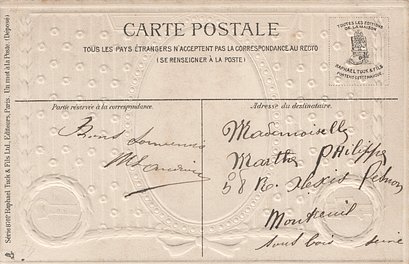 CARTE POSTALE
TOUS LES PAYS ÉTRANGERS N'ACCEPTENT PAS LA CORRESPONDANCE AU RECTO
(SE RENSEIGNER À LA POSTE)
TOUTES LES EDITIONS
DE LA MAISON
RAPHAEL TUCK & FILS
PORTENT CETTE MARQUE
Partie réservée à la correspondance.
Adresse du destinataire.
Bons Souvenirs
Mademoiselle
Marthe Philippe
58 R. Alexis Pesnon
Montreuil
sous bois Seine
Raphael Tuck & Fils Ltd, Editeurs, Paris. Un mot à la Poste. (Déposé)